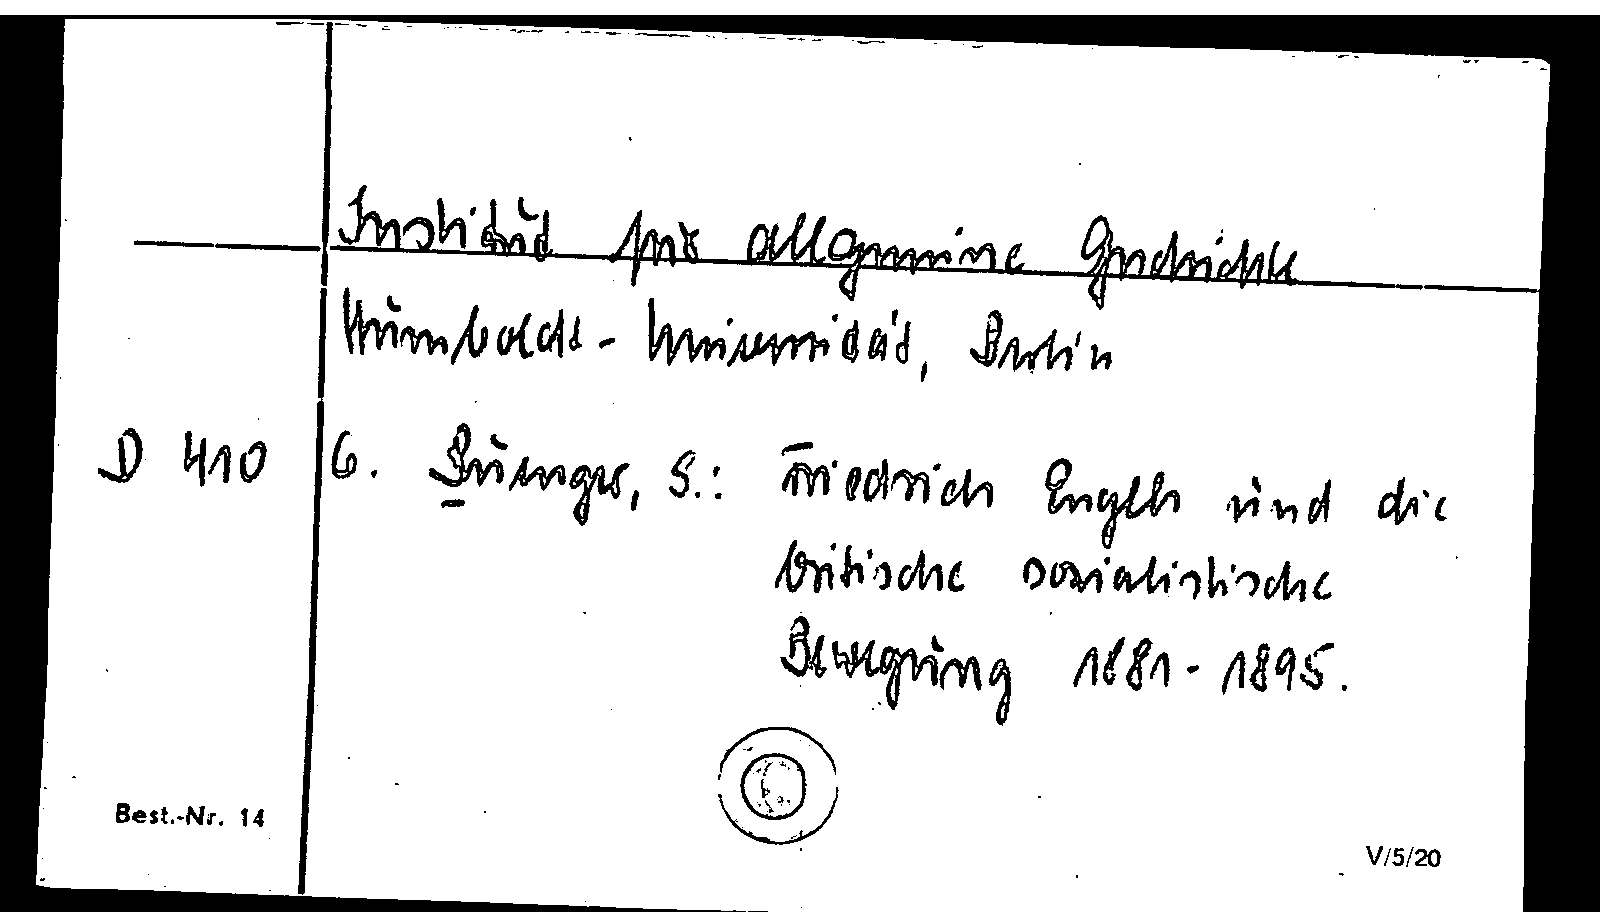 Institut für allgemeine Geschichte
Humboldt-Universität, Berlin
D 410 6. Bünger, S.: Friedrich Engels und die
britische sozialistische
Bewegung 1881-1895.
Best.-Nr. 14
V/5/20